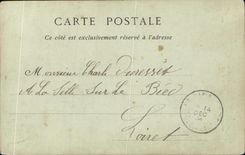 CARTE POSTALE
Ce côté est exclusivement réservé à l'adresse
Monsieur Charle
A La Selle Sur Le Bied
Loiret
14
DEC